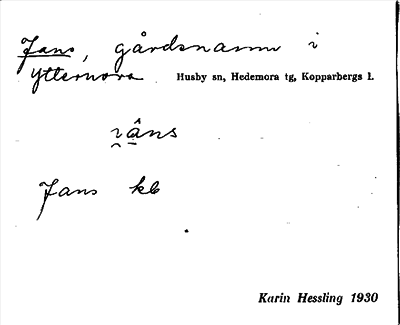 Jans, gårdsnamn i
Ytternora Husby sn, Hedemora tg, Kopparbergs l.
Jans kb
Karin Hessling 1930